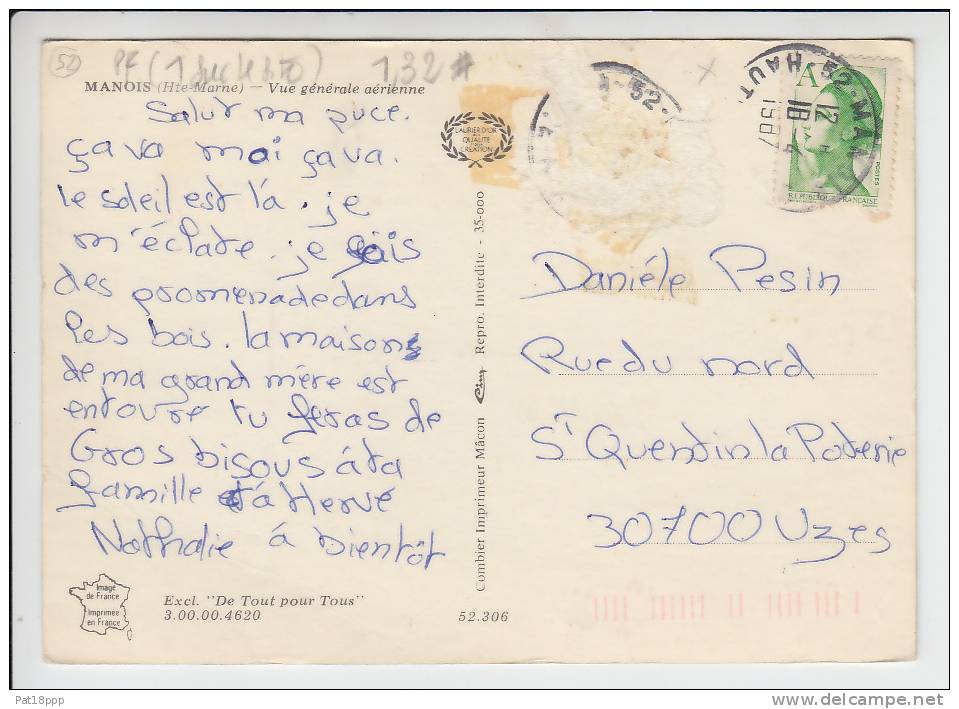 52
PF (1
1,32 #
MANOIS (Hte-Marne) — Vue générale aérienne
Salut ma puce.
ça va moi ça va.
le soleil est là. je
m'éclate. je fais
des promenade dans
les bois. la maison
de ma grand mère est
entouré tu feras de
Gros bisous à ta
famille et à Hervé
Nathalie à Bientôt
Image
de France
Imprimée
en France
Excl. "De Tout pour Tous"
3.00.00.4620
52.306
LAURIER D'OR
DE
QUALITÉ
CRÉATION
Combier Imprimeur Mâcon Cim Repro. Interdite - 35-000
52-
x
52-MAN
HAUT
18H
12-4
1987
A
POSTES
REPUBLIQUE FRANÇAISE
Danièle Pesin
Rue du nord
St Quentin la Poterie
30700 Uzes
Pat18ppp
http://www.delcampe.net